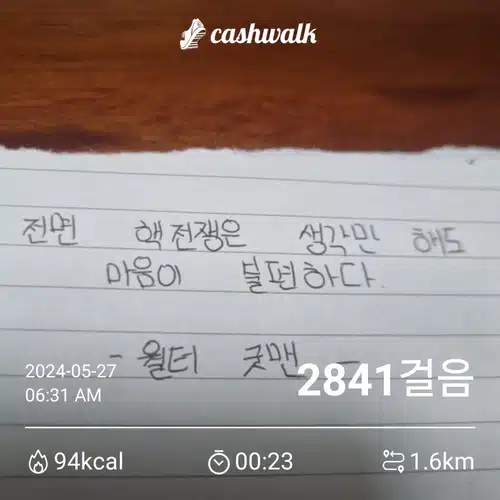 cashwalk
전면 핵전쟁은 생각만 해도
마음이 불편하다.
- 월터 굿맨 -
2024-05-27
06:31 AM
2841걸음
94kcal
00:23
1.6km